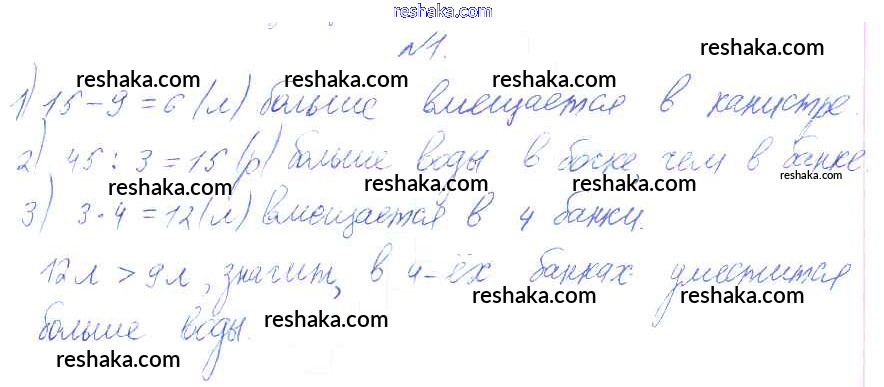 reshaka.com
№1.
reshaka.com reshaka.com reshaka.com reshaka.com
1) 15 - 9 = 6 (л) больше вмещается в канистре.
reshaka.com reshaka.com reshaka.com
2) 45 : 3 = 15 (р) больше воды в бочке, чем в банке.
reshaka.com reshaka.com reshaka.com reshaka.com
3) 3 · 4 = 12 (л) вмещается в 4 банки.
12л > 9л, значит, в 4-ёх банках уместится
reshaka.com reshaka.com reshaka.com
больше воды.
reshaka.com
reshaka.com